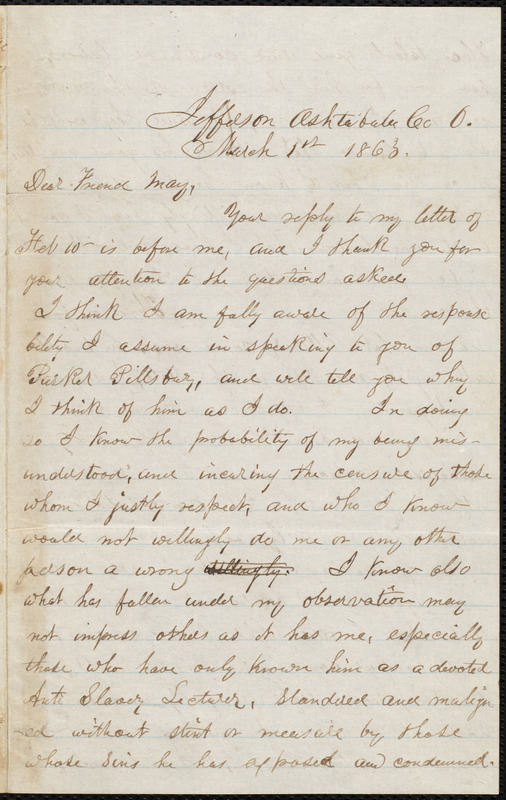 Jefferson Ashtabula Co O.
March 1st 1863.
Dear Friend May,
Your reply to my letter of
Feb 10 - is before me, and I thank you for
your attention to the questions asked.
I think I am fully aware of the responsi
bility I assume in speaking to you of
Parker Pillsbury, and will tell you why
I think of him as I do. In doing
so I know the probability of my being mis-
understood, and incuring the censure of those
whom I justly respect, and who I know
would not willingly do me or any other
person a wrong willingly. I know also
what has fallen under my observation may
not impress others as it has me, especially
those who have only known him as a devoted
Anti Slavery Lecturer, slandered and malign
ed without stint or measure by those
whose sins he has exposed and condemned.